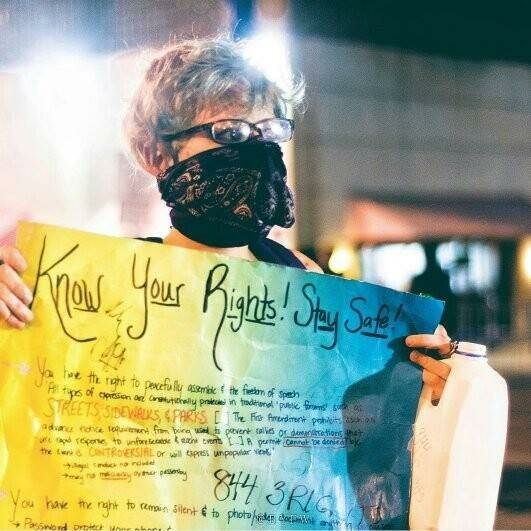 Know Your Rights! Stay Safe!
You have the right to peacefully assemble & the freedom of speech
"All types of expression are constitutionally protected in traditional 'public forums' such as
STREETS, SIDEWALKS & PARKS. [...] The First Amendment prohibits such an
advance notice requirement from being used to prevent rallies or demonstrations that
are rapid responses to unforeseeable & recent events [...] A permit cannot be denied b/c
the event is CONTROVERSIAL or will express unpopular views."
→ illegal conduct not included
→ may not maliciously obstruct passersby
844 3RIG
You have the right to remain silent & to photo/video document
→ Password protect your phone &